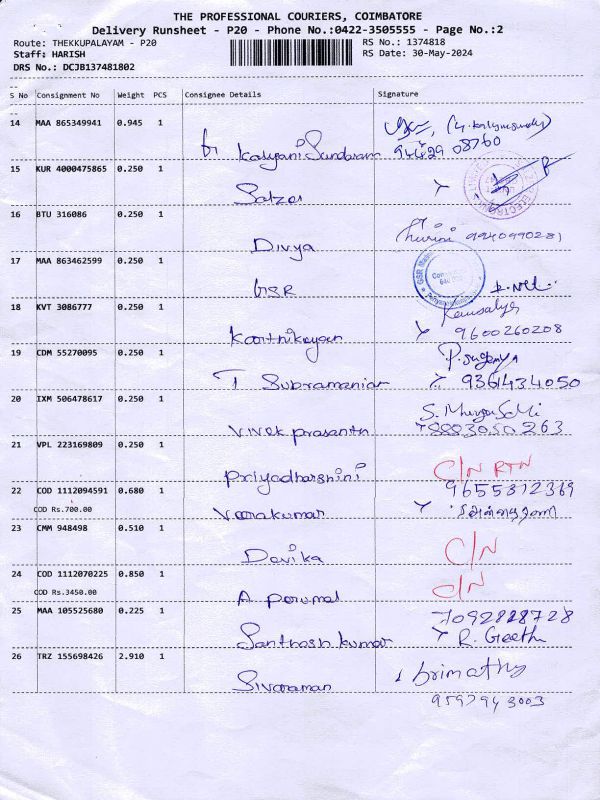 THE PROFESSIONAL COURIERS, COIMBATORE
Delivery Runsheet - P20 - Phone No.:0422-3505555 - Page No.:2
Route: THEKKUPALAYAM - P20
RS No.: 1374818
Staff: HARISH
RS Date: 30-May-2024
DRS No.: DCJB137481802
S No Consignment No Weight PCS Consignee Details Signature
14 MAA 865349941 0.945 1
G Kalyani Sundaram 94429 08760
15 KUR 4000475865 0.250 1
Salzer
16 BTU 316086 0.250 1
Divya 9940990281
17 MAA 863462599 0.250 1
GSR
18 KVT 3086777 0.250 1
Kausalya
Karthikeyan 9600260208
19 CDM 55270095 0.250 1
P. Sugenya
T Subramaniar 9361434050
20 IXM 506478617 0.250 1
Vivek prasanth
21 VPL 223169809 0.250 1
Priyadharshini C/N RTN
22 COD 1112094591 0.680 1
9655312369
COD Rs.700.00
Veerakumar
23 CMM 948498 0.510 1
Devika C/N
24 COD 1112070225 0.850 1
COD Rs.3450.00
A perumal C/N
25 MAA 105525680 0.225 1
7092828728
Santhosh kumar R. Geetha
26 TRZ 155698426 2.910 1
Sivaraman Srimathy
9597943003